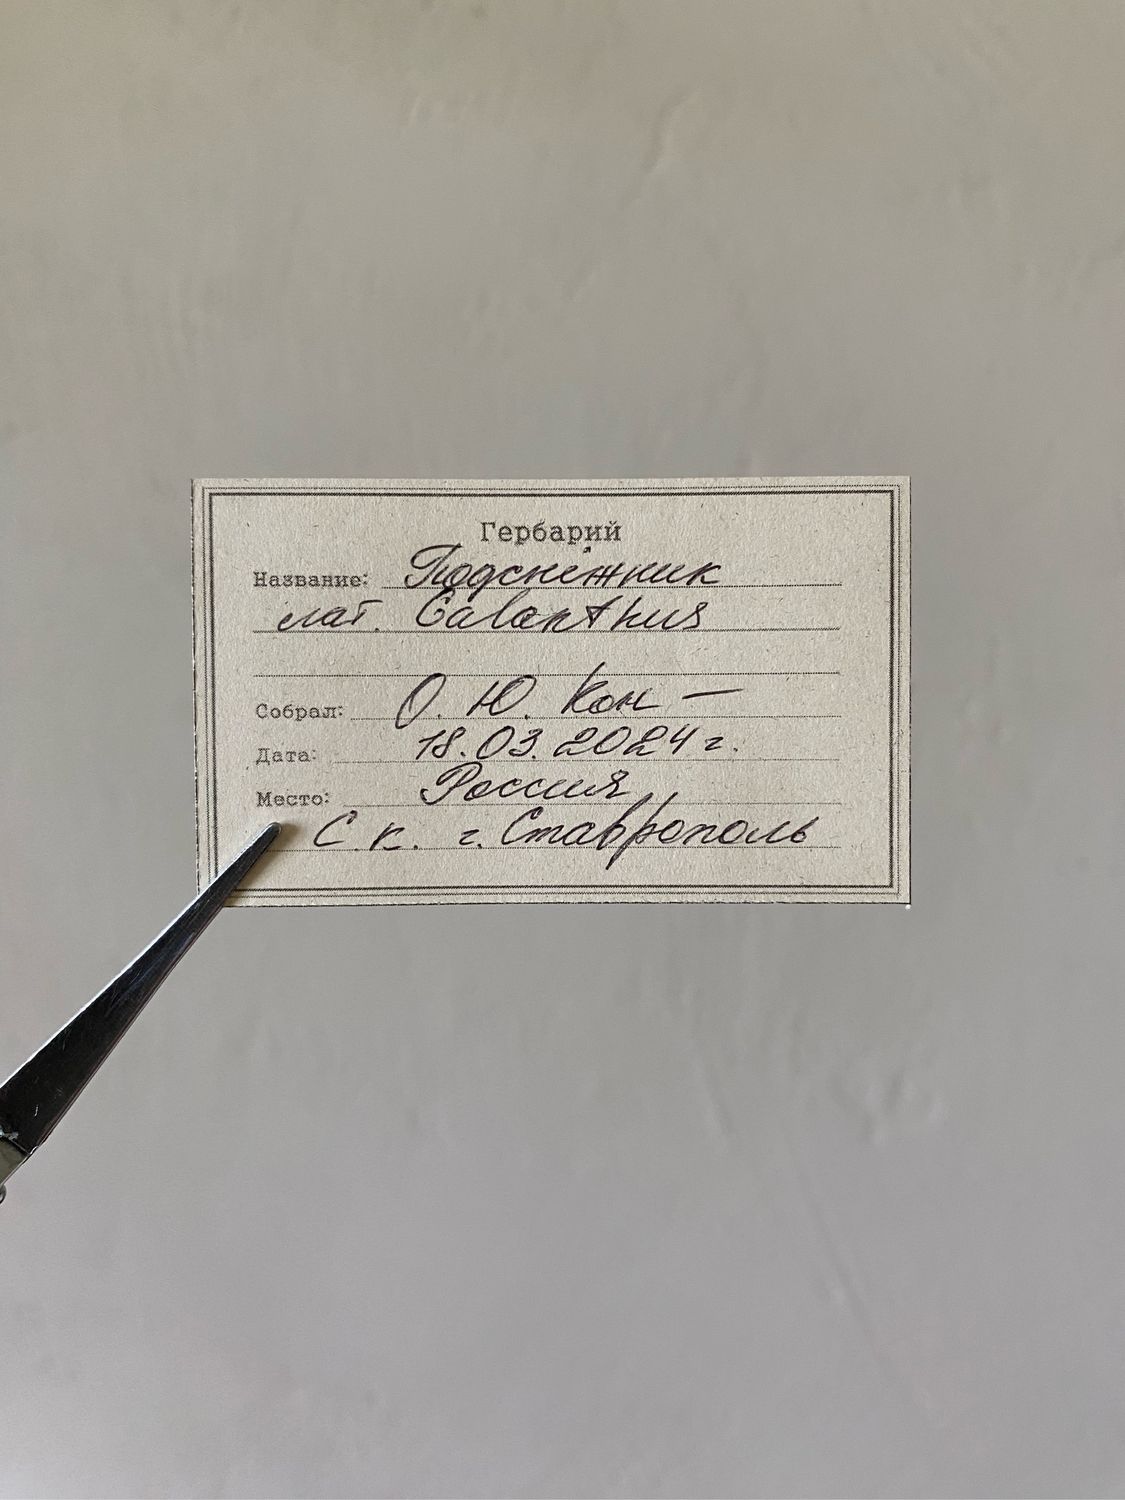 Гербарий
Название: Подснежник
лат. Galanthus
Собрал: О. Ю. Кон —
Дата: 18.03.2024 г.
Место: Россия
С. к. г. Ставрополь